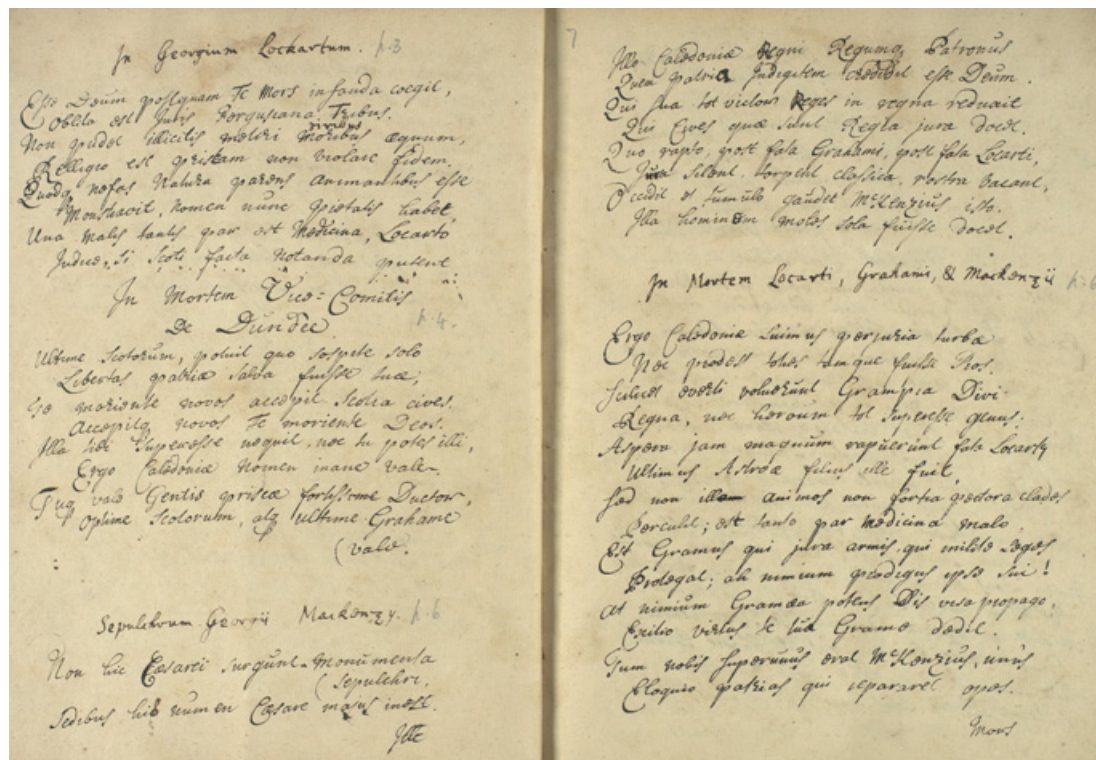 In Georgium Lockartum. p. 3
Esse Deum postquam Te Mors infanda coegit,
Oblita est Juris Fergusiana Tribus.
Non pudet illicitis metiri viribus
moribus æquum,
Relligio est priscam non violare fidem.
Quodq nefas Natura parens animantibus esse
Monstravit, nomen nunc pietatis habet,
Una malis tantis par est Medicina, Locarto
Judice, si Scoti facta notanda putent
In Mortem Vice=Comitis
De Dundee p. 4.
Ultime Scotorum, potuit quo sospite solo
Libertas patriæ salva fuisse tuæ,
Te moriente novos accepit Scotia cives.
Accepitq novos Te moriente Deos.
Illa tibi superesse nequit, nec tu potes illi,
Ergo Caledoniæ nomen inane vale.
Tuq vale Gentis priscæ fortissime Ductor,
Optime Scotorum, atq ultime Grahame
(vale.
Sepulchrum Georgii Mackenzy. p. 6
Non hic Cæsarei surgunt monumenta
(sepulchri.
Sedibus his numen Cæsare majus inest.
Ille
7
Ille Caledoniæ Regni Regumq Patronus
Quem patria Indigitem credidit esse Deum.
Qui sua tot victor Reges in regna reduxit
Qui Cives quæ sunt Regia jura docet.
Quo rapto, post fata Grahami, post fata Locarti,
Jura silent, torpent classica, rostra vacant,
Occidit et tumulo gaudet McKenzius isto.
Illa hominem moles sola fuisse docet.
In Mortem Locarti, Grahami, & Mackenzii p. 6
Ergo Caledoniæ luimus perjuria turba
Nec prodest toties tamque fuisse pios.
Scilicet everti voluerunt Grampia Divi
Regna, nec heroum tot superesse genus.
Aspera jam magnum rapuerunt fata Locarty
Ultimus Astrææ filius ille fuit,
Sed non animos non fortia pectora clades
Perculit; est tanto par medicina malo.
Est Gramus qui jura armis qui milite leges
Protegat; ah nimium prodigus ipse sui!
At nimium Gramæa potens Dis visa propago.
Exitio virtus te tua Grame dedit.
Tum nobis superunus erat McKenzius, unus
Eloquio patrias qui repararet opes.
Mors